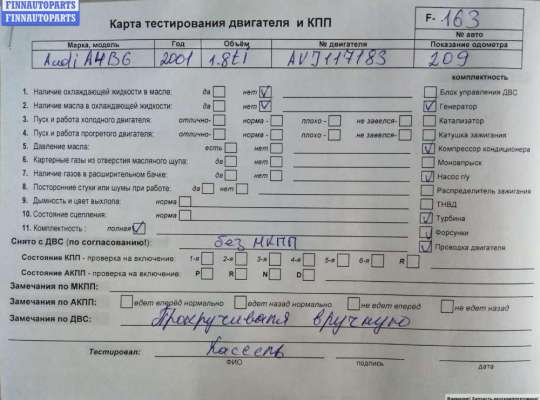 FINNAUTOPARTS
FINNAUTOPARTS
Карта тестирования двигателя и КПП
F- 163
№ авто
Марка, модель Год Объём № двигателя Показание одометра
Audi A4B6 2001 1.8ti AVJ117183 209
комплектность
1. Наличие охлаждающей жидкости в масле: да нет Блок управления ДВС
2. Наличие масла в охлаждающей жидкости: да нет Генератор
3. Пуск и работа холодного двигателя: отлично- норма - плохо - не завелся- Катализатор
4. Пуск и работа прогретого двигателя: отлично- норма - плохо - не завелся- Катушка зажигания
5. Давление масла: есть нет Компрессор кондиционера
6. Картерные газы из отверстия масляного щупа: да нет Моновпрыск
7. Наличие газов в расширительном бачке: да нет Насос г/у
8. Посторонние стуки или шумы при работе: да нет Распределитель зажигания
9. Дымность и цвет выхлопа: норма ТНВД
10. Состояние сцепления: норма Турбина
11. Комплектность : полная Форсунки
Снято с ДВС (по согласованию!): без МКПП Проводка двигателя
Состояние КПП - проверка на включение: 1-я 2-я 3-я 4-я 5-я 6-я R
Состояние АКПП - проверка на включение: P R N D
Замечания по МКПП:
Замечания по АКПП: едет вперёд нормально едет назад нормально не едет вперёд не едет назад
Замечания по ДВС: Прокручивали вручную
Тестировал:
ФИО подпись дата